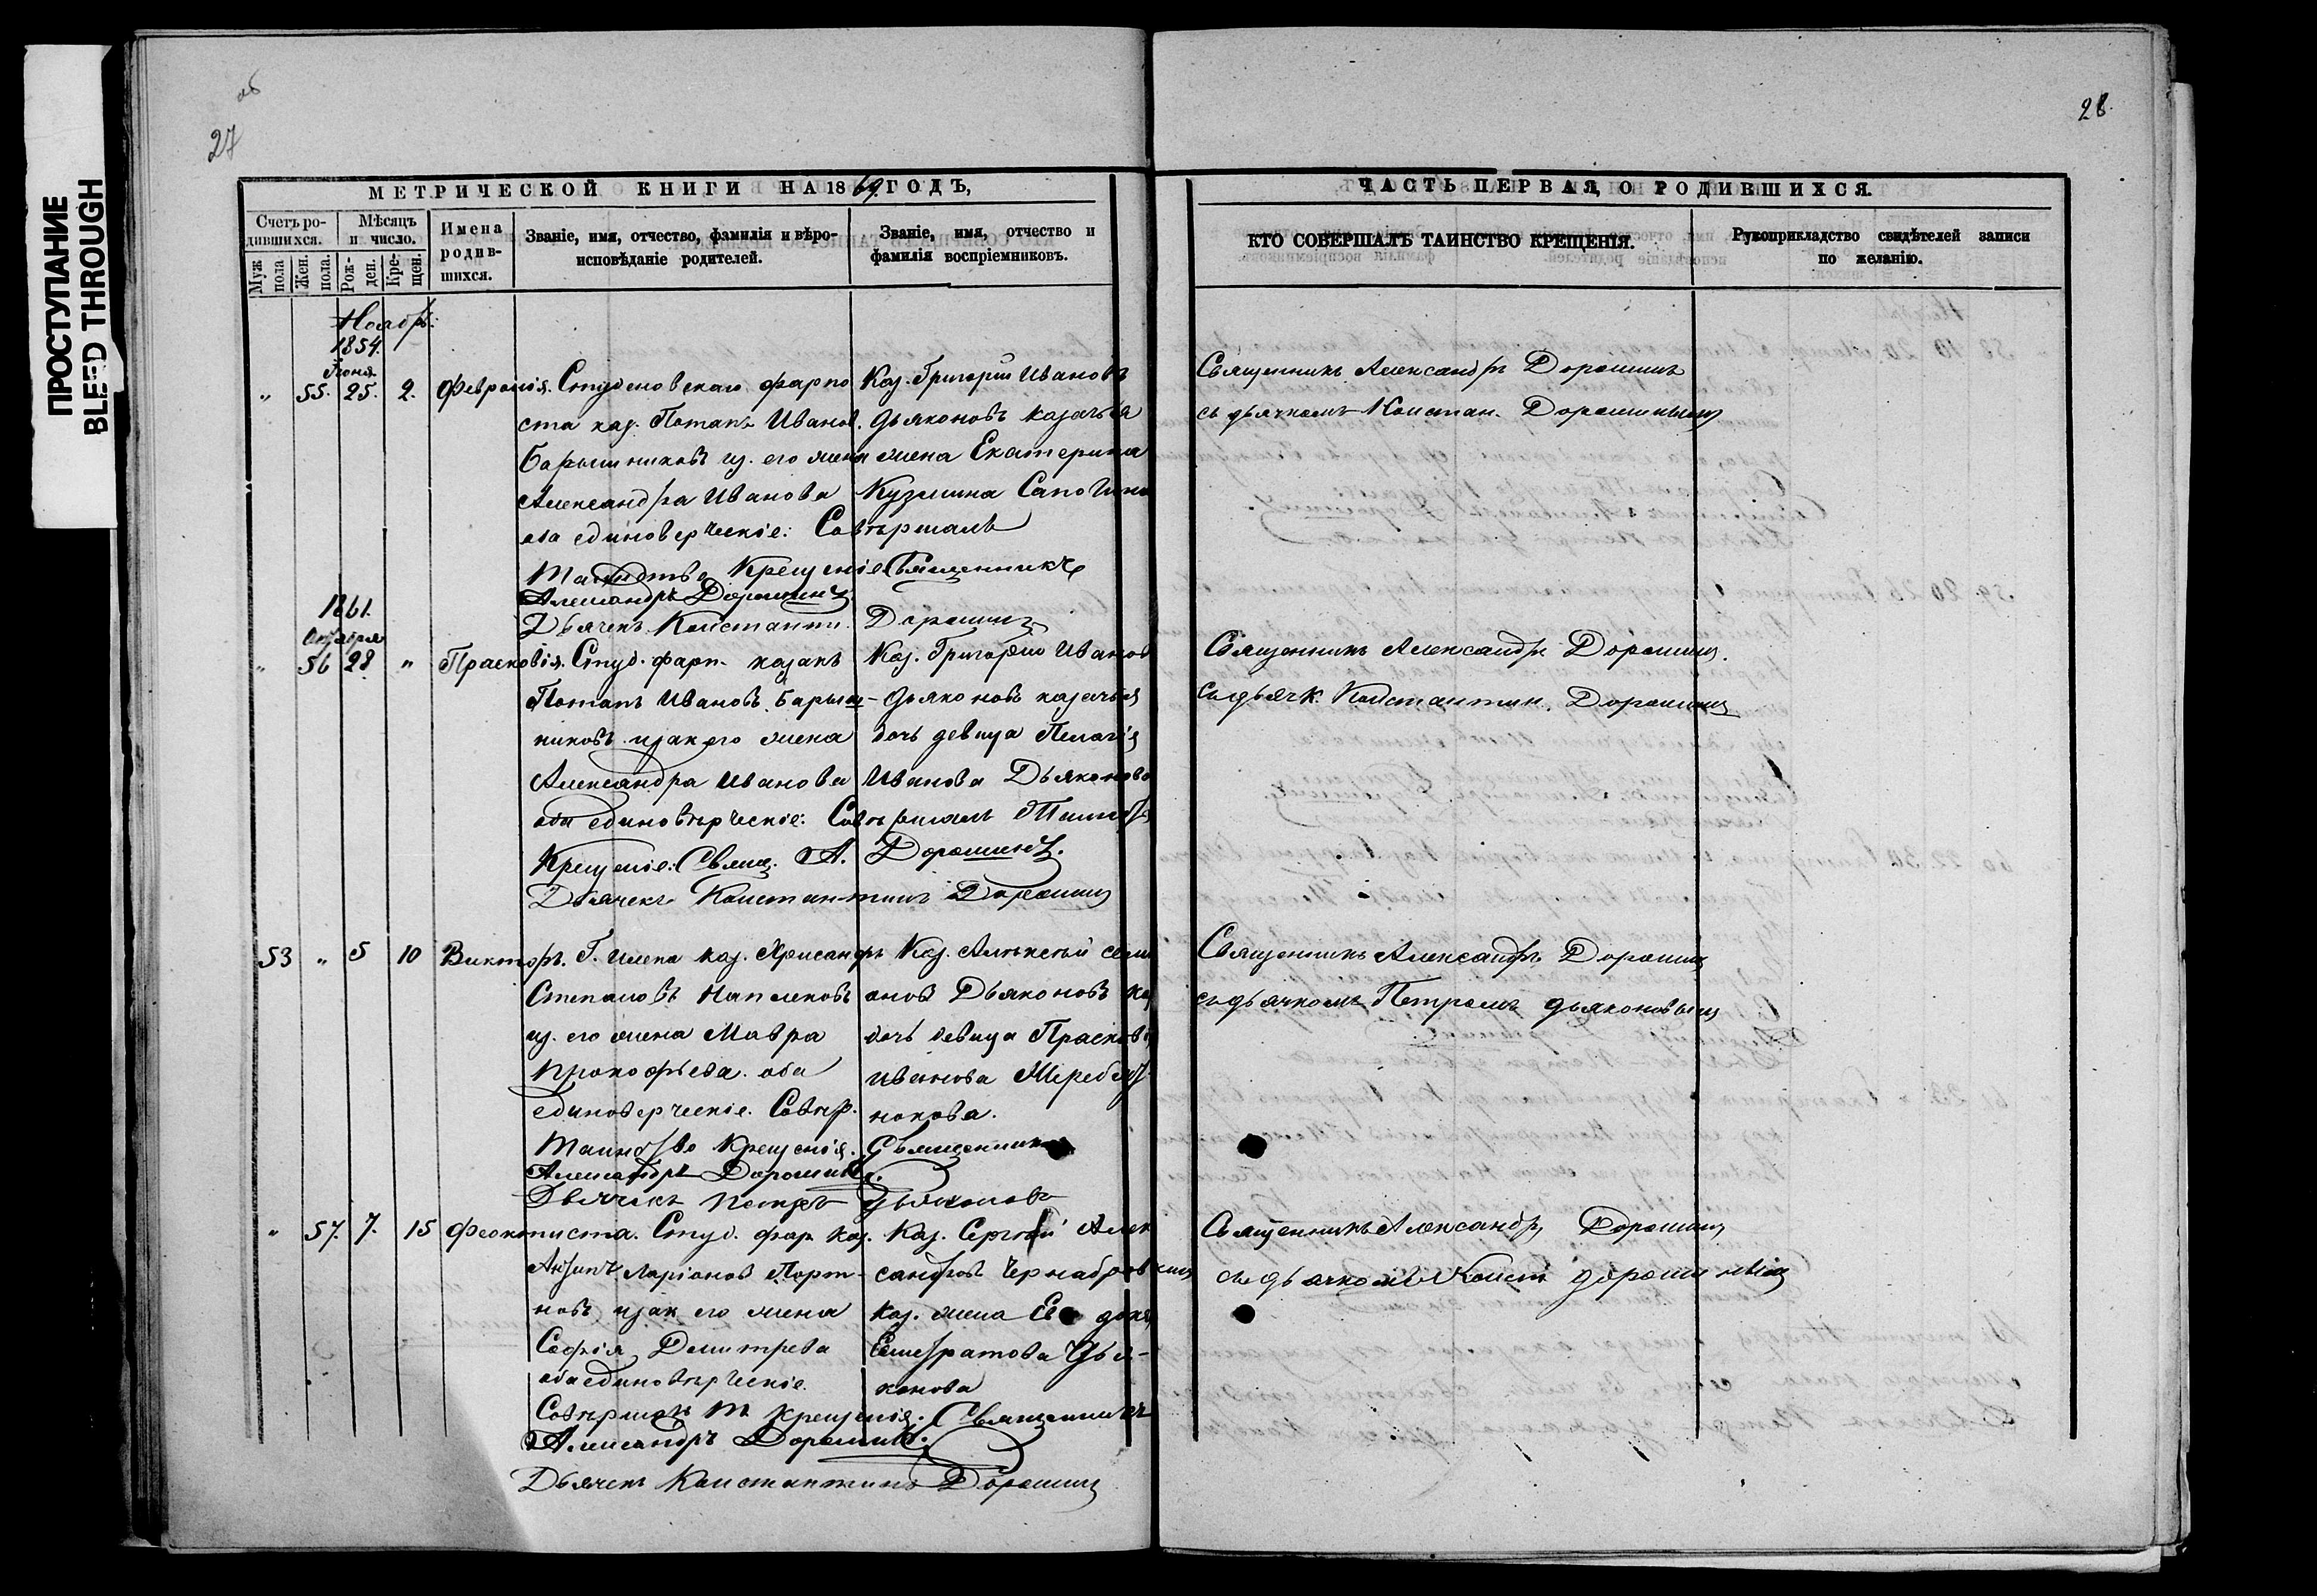 ПРОСТУПАНИЕ
BLEED THROUGH
об
27
28.
МЕТРИЧЕСКОЙ КНИГИ НА 1869 ГОДЪ,
Счетъ ро-
дившихся.
Мѣсяцъ
и число.
Муж
пола
Жен.
пола.
Рож-
ден.
Кре-
щен.
Имена
родив-
шихся.
Званіе, имя, отчество, фамилія и вѣро-
исповѣданіе родителей.
Званіе, имя, отчество и
фамилія воспріемниковъ.
ЧАСТЬ ПЕРВАЯ, О РОДИВШИХСЯ.
КТО СОВЕРШАЛЪ ТАИНСТВО КРЕЩЕНІЯ.
Рукоприкладство свидѣтелей записи
по желанію.
Ноябрь.
1854.
Іюня
" 55. 25. 2. Февронія.
Студеновскаго фарпо
ста каз. Потапъ Иванов.
Барышниковъ из. его жена
Александра Иванова
оба единоверческіе: Совѣршалъ
Таинство Крещеніе Священникъ
Александръ Дорошинъ
Дьячекъ Константи. Дорошинъ
Каз. Григорій Ивановъ
Дьяконовъ казачья
жена Екатерина
Кузмина
Священникъ Александръ Дорошинъ
съ дьячкомъ Констан. Дорошинымъ
1861.
Октября
" 56 28. " Прасковія.
Студ. фарп. казакъ
Потапъ Ивановъ Барыш-
никовъ изак его жена
Александра Иванова
оба единовѣрческіе: Совѣршалъ
Крещеніе: Свящ. А. Дорошинъ.
Дьячекъ Константинъ Дорошинъ
Каз. Григорій Иванов
Дьяконовъ казачья
дочь девица Пелагія
Иванова Дьяконова
Священникъ Александръ Дорошинъ.
съ дьячк. Константин. Дорошинымъ
53 " 5 10 Викторъ.
Г. Илека каз. Хрисанфъ
Степановъ Наплековъ
из. его жена Мавра
Прокофьева. оба
единоверческіе. Совѣр.
Таинство Крещенія. Священникъ
Александръ Дорошинъ.
Дьячекъ Петръ Дьяконовъ
Каз. Алѣксѣй
Дьяконовъ
дочь девица Прасковья
Иванова
нокова.
Священникъ Александръ Дорошинъ
съ дьячкомъ Петромъ Дьяконовымъ
" 57. 7. 15 Феоктиста.
Студ. фар каз.
Антипъ Ларіоновъ Порт-
новъ изак его жена
Софія Демитрева
оба единовѣрческіе.
Совѣршалъ Т. Крещенія. Священникъ
Александръ Дорошинъ.
Дьячекъ Константинъ Дорошинъ
Каз. Сергѣй Алек
сандровъ
каз. жена
Дья-
конова
Священникъ Александръ Дорошинъ
съ дьячкомъ Конст Дорошинымъ